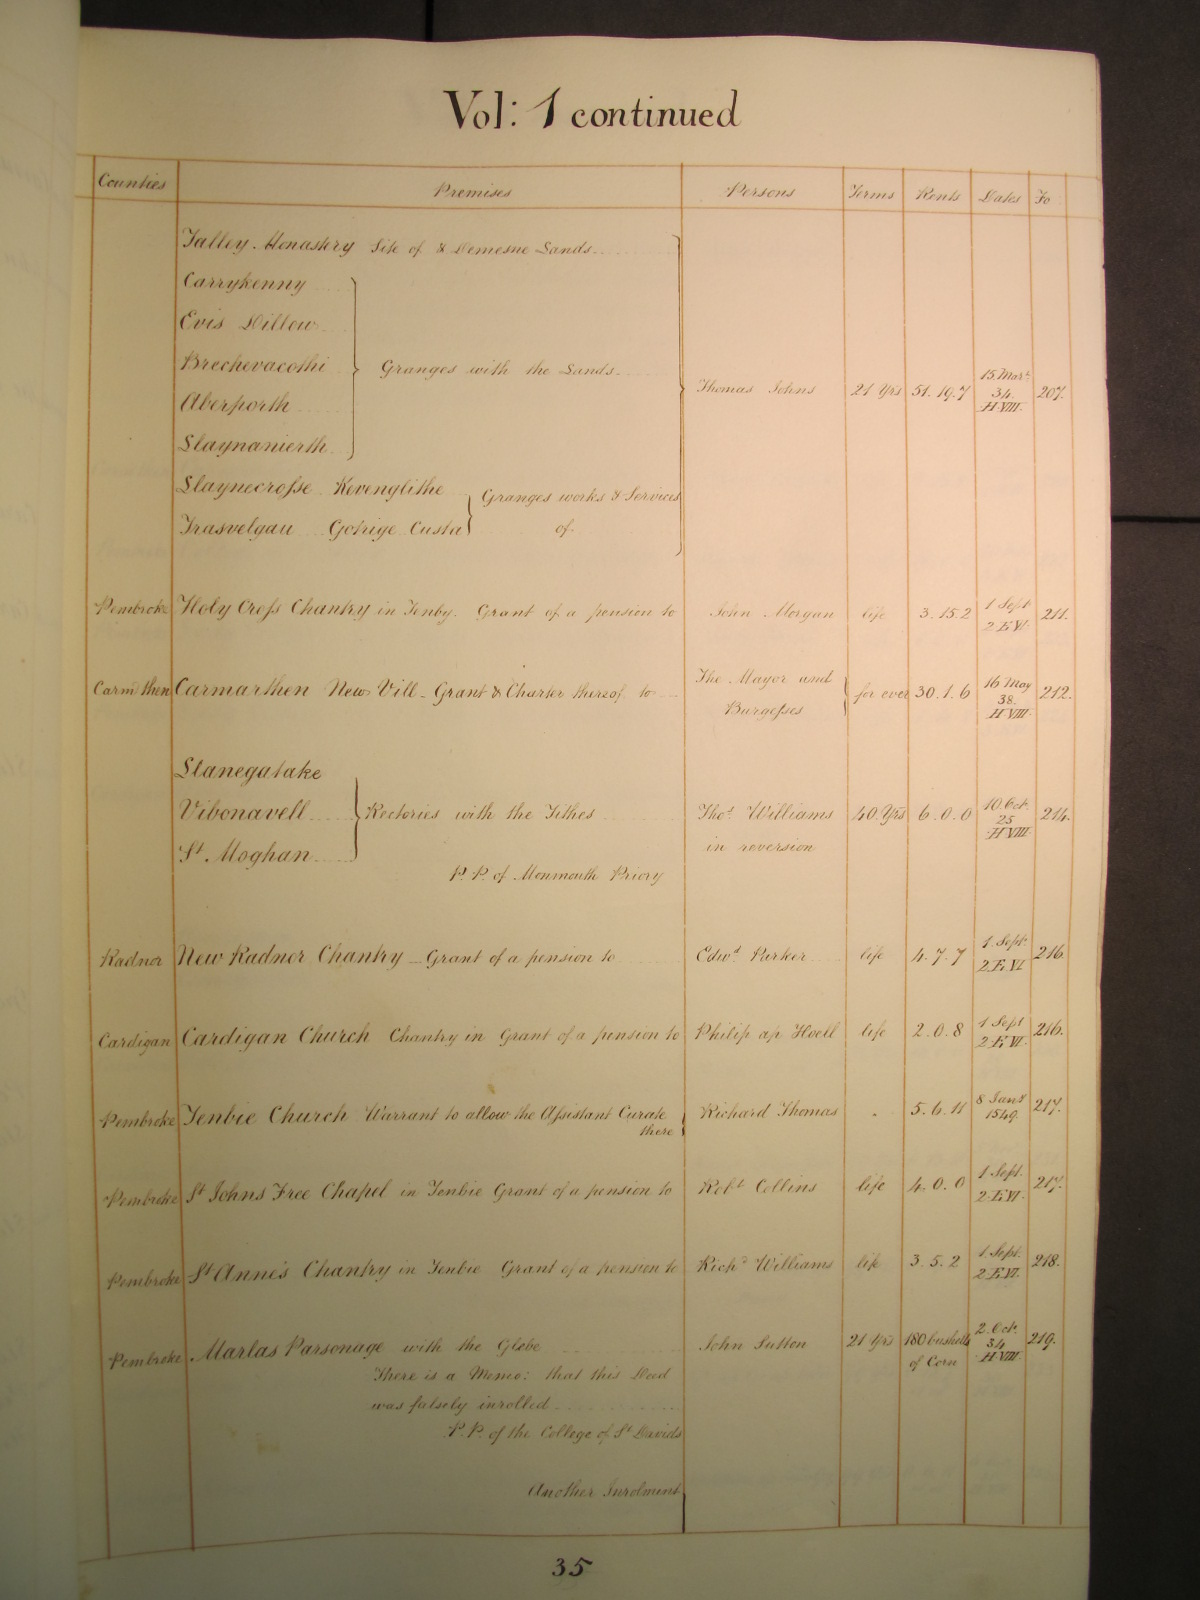 Vol: 1 continued
Counties Premises Persons Terms Rents Dates Fo
Talley Monastery Site of & Demesne Lands
Carrykenny
Evis Dillow
Brechevacothi Granges with the Lands
Aberporth
Llaynanierth
Thomas Johns 21 Yrs 51.19.7 15 Mar: 34. H.VIII. 207.
Llaynecrosse Kevenglithe Granges works & Services
Trasvelgau Gotrige Custa of
Pembroke Holy Cross Chantry in Tenby. Grant of a pension to John Morgan life 3.15.2 1 Sept 2 E VI. 211.
Carmthen Carmarthen New Vill - Grant & Charter thereof to The Mayor and Burgesses for ever 30.1.6 16 May 38. H VIII. 212.
Llanegatake
Vibonavell Rectories with the Tithes Thos. Williams 40 Yrs 6.0.0 10 Oct. 25 H VIII. 214.
St. Moghan in reversion
P. P. of Monmouth Priory
Radnor New Radner Chantry - Grant of a pension to Edwd. Parker life 4.7.7 1. Sept. 2 E. VI. 216.
Cardigan Cardigan Church Chantry in Grant of a pension to Philip ap Hoell life 2.0.8 1 Sept 2 E. VI. 216.
Pembroke Tenbie Church Warrant to allow the Assistant Curate there Richard Thomas . 5.6.11 8 Jany 1549. 217.
Pembroke St Johns Free Chapel in Tenbie Grant of a pension to Robt Collins life 4.0.0 1 Sept. 2 E VI. 217.
Pembroke St Anne's Chantry in Tenbie Grant of a pension to Richd Williams life 3.5.2 1 Sept. 2 E VI. 218.
Pembroke Marlas Parsonage with the Glebe John Sutton 21 Yrs 180 bushells of Corn 2. Oct. 34 H VIII. 219.
There is a Memo: that this Deed
was falsely inrolled
P. P. of the College of St Davids
Another Inrolment
35